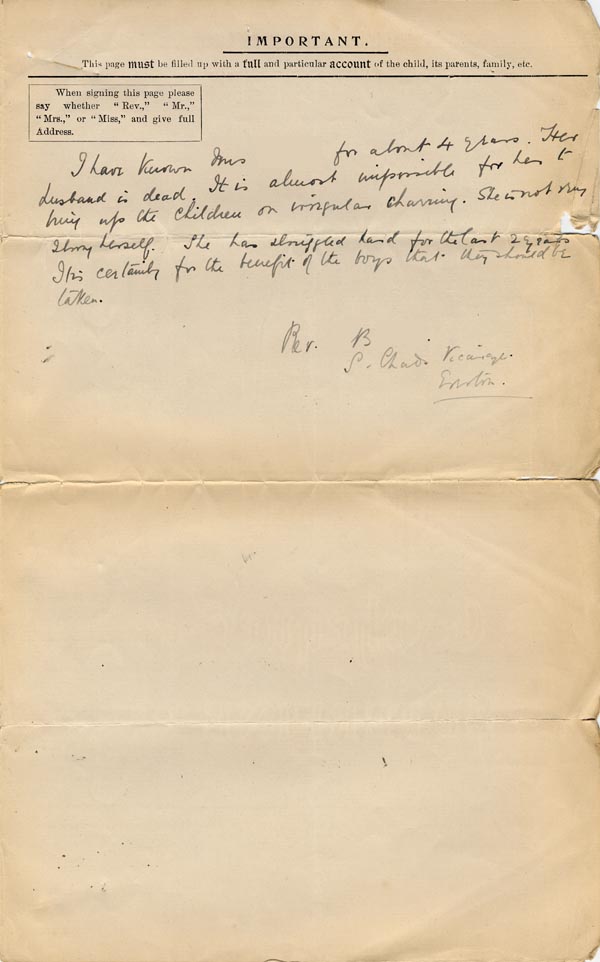 IMPORTANT.
This page must be filled up with a full and particular account of the child, its parents, family, etc.
When signing this page please
say whether "Rev.," "Mr.,"
"Mrs.," or "Miss," and give full
Address.
I have known Mrs for about 4 years. Her
husband is dead. It is almost impossible for her to
bring up the children on irregular charring. She is not very
strong herself. She has struggled hard for the last 2 years
It is certainly for the benefit of the boys that they should be
taken.
Rev. B
S. Chad's Vicarage.